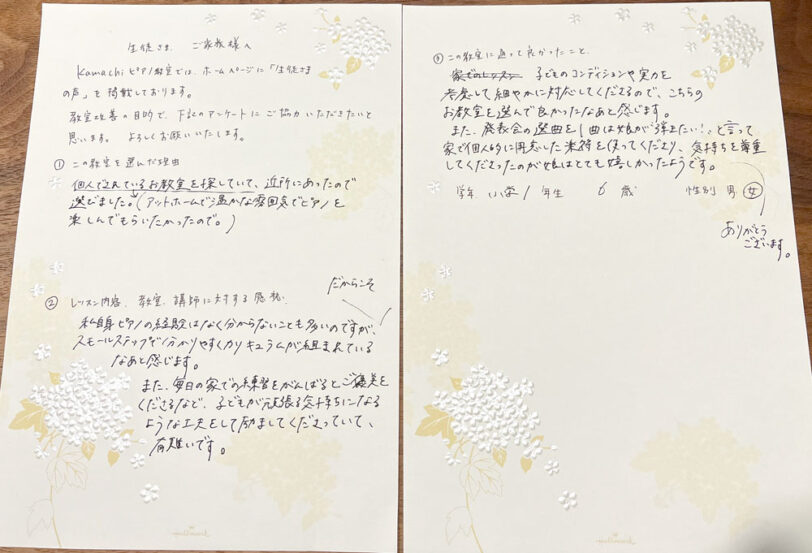 生徒さま、ご家族様へ
Kamachiピアノ教室では、ホームページに「生徒さま
の声」を掲載しております。
教室改善の目的で、下記のアンケートにご協力いただきたいと
思います。よろしくお願いいたします。
① この教室を選んだ理由
個人でされているお教室を探していて、近所にあったので
選びました。(アットホームで温かな雰囲気でピアノを
楽しんでもらいたかったので。)
② レッスン内容、教室、講師に対する感想
だからこそ
私自身ピアノの経験はなく分からないことも多いのですが、
スモールステップで分かりやすくカリキュラムが組まれている
なあと感じます。
また、毎日の家での練習をがんばるとご褒美を
くださるなど、子どもが頑張る気持ちになる
ような工夫をして励ましてくださっていて、
有難いです。
Hallmark
③ この教室に通って良かったこと
家でのレッスン 子どものコンディションや実力を
考慮して細やかに対応してくださるので、こちらの
お教室を選んで良かったなあと感じます。
また、発表会の選曲を1曲は娘が「弾きたい!」と言って
家で個人的に用意した楽譜を使ってくださり、気持ちを尊重
してくださったのが娘はとても嬉しかったようです。
学年 小学1年生 6歳 性別 男 女
ありがとう
ございます。
Hallmark